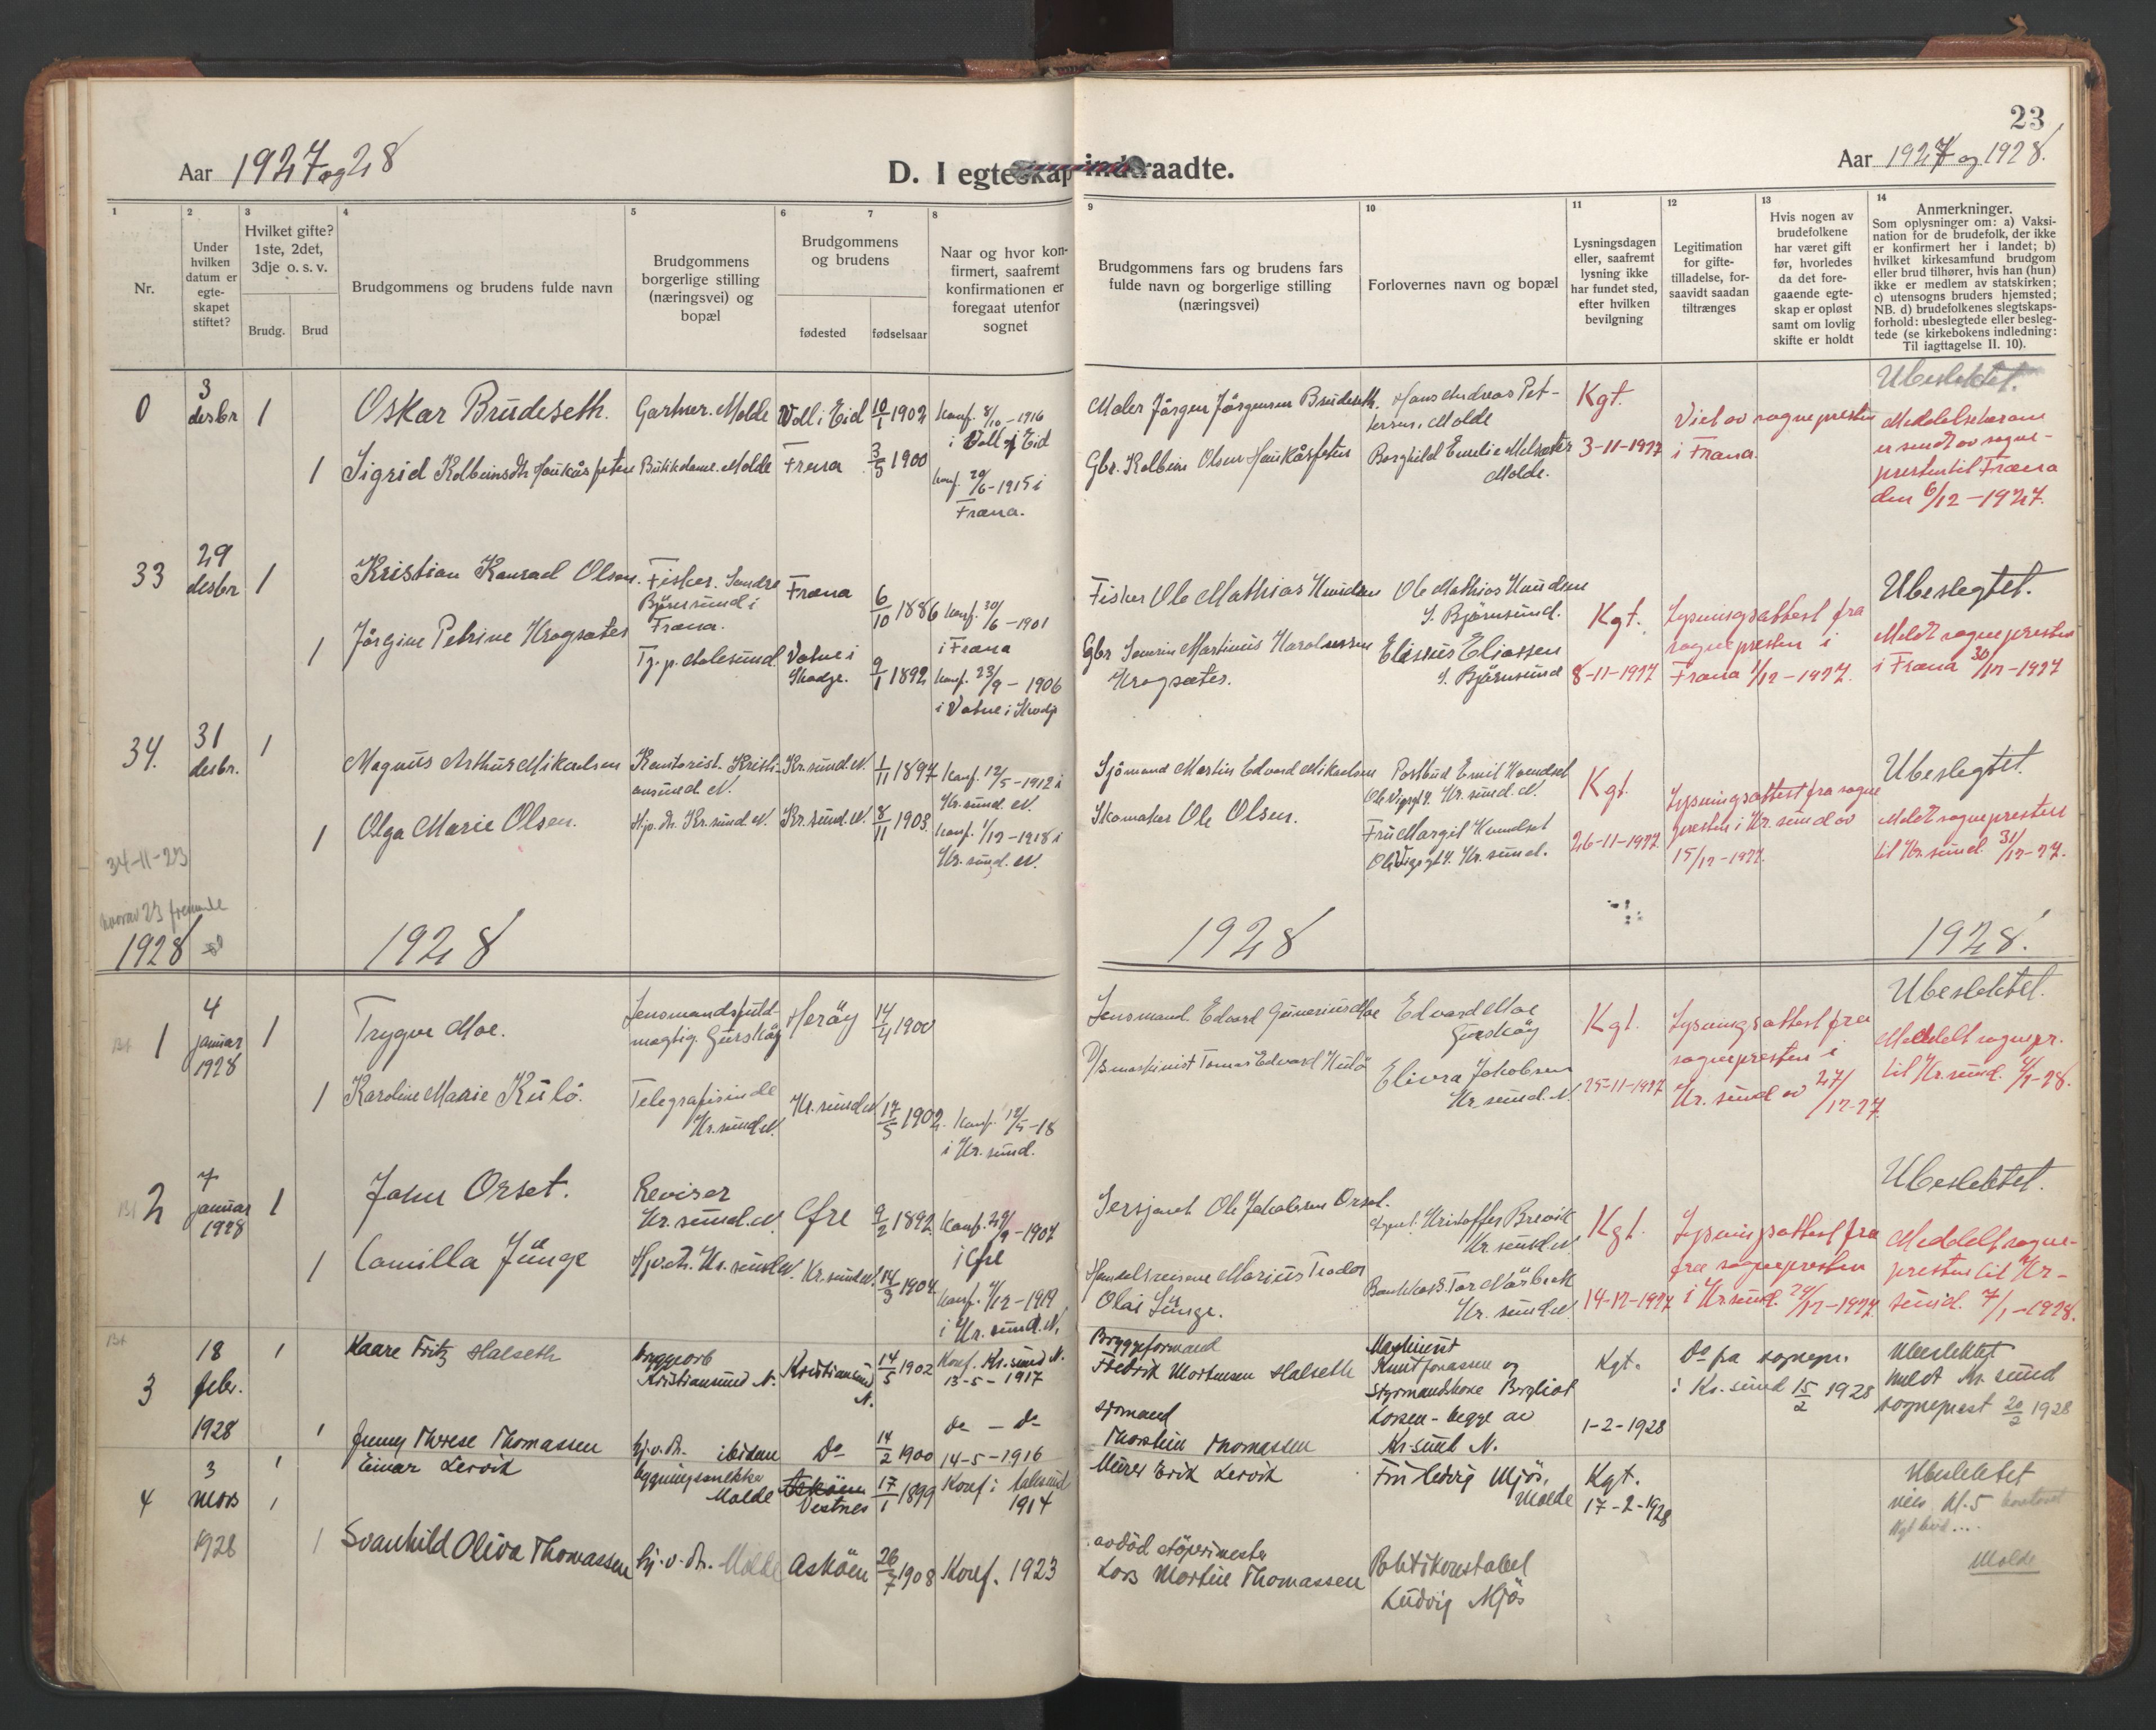 23
Aar 1927 og 28
D. I egteskap indtraadte.
Aar 1927 og 1928.
1
2
3
4
5
6
7
8
9
10
11
12
13
14
Nr.
Under hvilken datum er egte-skapet stiftet?
Hvilket gifte? 1ste, 2det, 3dje o. s. v.
Brudg.
Brud
Brudgommens og brudens fulde navn
Brudgommens borgerlige stilling (næringsvei) og bopæl
Brudgommens og brudens
fødested
fødselsaar
Naar og hvor kon-firmert, saafremt konfirmationen er foregaat utenfor sognet
Brudgommens fars og brudens fars fulde navn og borgerlige stilling (næringsvei)
Forlovernes navn og bopæl
Lysningsdagen eller, saafremt lysning ikke har fundet sted, efter hvilken bevilgning
Legitimation for gifte-tilladelse, for-saavidt saadan tiltrænges
Hvis nogen av brudefolkene har været gift før, hvorledes da det fore-gaaende egte-skap er opløst samt om lovlig skifte er holdt
Anmerkninger.
Som oplysninger om: a) Vaksi-nation for de brudefolk, der ikke er konfirmert her i landet; b) hvilket kirkesamfund brudgom eller brud tilhører, hvis han (hun) ikke er medlem av statskirken; c) utensogns bruders hjemsted; NB. d) brudefolkenes slegtskaps-forhold: ubeslegtede eller besleg-tede (se kirkebokens indledning: Til iagttagelse II. 10).
0
3 desbr
1
Oskar Brudeseth.
Gartner. Molde
Voll i Eid
10/1 1902
Konf. 8/10-1916 i Voll i Eid
Maler Jörgen Jörgensen Brudeseth.
Hans Andreas Pettersen, Molde
Kgt.
Viet av sognepresten i Fræna.
Ubeslektet.
1
Sigrid Kolbeinsdtr Haukåsfeten
Butikdame. Molde
Fræna
3/5 1900
Konf. 20/6-1915 i Fræna.
Gbr. Kolbein Olsen Haukåsfeten
Borghild Emelie Melsæter Molde.
3-11-1927
Meddelelse herom er sendt av sogne-presten til Fræna den 6/12-1927.
33
29 desbr
1
Kristian Konrad Olsen.
Fisker. Sondre Björnsund i Fræna.
Fræna
6/10 1886
Konf. 30/6-1901 i Fræna
Fisker Ole Mathias Knudsen
Ole Mathias Knudsen S. Björnsund.
Kgt.
Lysningsattest fra sognepresten i Fræna 1/12-1927.
Ubeslegtet.
1
Jörgine Petrine Krogsæter
Tj. p. Aalesund
Vatne i Skodje.
9/1 1892
Konf. 23/9-1906 i Vatne i Skodje
Gbr Severin Martinus Haraldsen Krogsæter.
Elisius Eliassen S. Björnsund
8-11-1927
Meldt sognepresten i Fræna 30/12-1927
34.
31 desbr.
1
Magnus Arthur Mikaelsen
Kontorist. Kristiansund N.
Kr.sund N.
1/11 1897
Konf. 12/5-1912 i Kr.sund. N.
Sjömand Martin Edvard Mikaelsen
Postbud Emil Knudset Ole Vigsgt 4. Kr.sund. N.
Kgt.
Lysningsattest fra sogne presten i Kr.sund av 15/12-1927.
Ubeslegtet.
1
Olga Marie Olsen.
Hj.v. dr. Kr.sund N.
Kr.sund. N.
8/11 1903.
Konf. 1/12-1918 i Kr.sund. N.
Skomaker Ole Olsen.
Fru Margit Knudset Ole Vigsgt 4. Kr.sund.
26-11-1927
Meldt sognepresten til Kr.sund 31/12-27.
34-11-23
hvorav 23 fremmede
1928
1928
1928
1928.
Bf.
1
4 januar 1928
1
Trygve Moe.
Lensmandsfuld-mægtig. Gurskøy
Herøy
14/4 1900
Lensmand Edvard Gunerius Moe
Edvard Moe Gurskøy
Kgt.
Lysningsattest fra sognepresten i Kr.sund av 27/12-27.
Ubeslektet.
1
Karoline Marie Kulö.
Telegrafistinde Kr.sund N.
Kr.sund N.
17/5 1902.
Konf. 12/5-18 i Kr.sund.
D/S maskinist Tomas Edvard Kulö
Elivra Jakobsen Kr.sund. N.
25-11-1927
Meddelt sognepr. til Kr.sund. 4/1-28.
Bf
2
7 januar 1928
1
Johan Orset.
Revisor Kr.sund. N.
Øre
9/2 1892.
Konf. 29/9-1907 i Øre
Sersjant Ole Jakobsen Orset.
Kristoffer Brevik Kr.sund N.
Kgt.
Lysningsattest fra fra sognepresten i Kr.sund. 29/12-1927.
Ubeslektet.
1
Camilla Junge
Hj.v.dr. Kr.sund N.
Kr.sund N.
14/3 1904.
Konf. 1/12-1919 i Kr.sund. N.
Handelsreisende Marius Teodor Olai Junge.
Bankkass. Tor Mörbeck Kr.sund N.
14-12-1927
Meddelt sogne-presten til Kr-sund. 7/1-1928.
Bf.
3
18 febr. 1928
1
Kaare Fritz Halseth
bryggearb Kristiansund N.
Kristiansund N.
14/5 1902
Konf. Kr.sund N. 13-5-1917
Bryggeformand Fredrik Mortensen Halseth
Maskinist Knut Jonassen og Styrmandskone Bergliot Larsen - begge av Kr-sund N.
Kgt.
1-2-1928
Do fra sognepr. i Kr.sund 15/2 1928
Ubeslektet
meldt Kr.sund sogneprest 20/2 1928
1
Jenny Therese Thomassen
hj.v.dr. ibidem
Do
14/2 1900
Do - Do 14-5-1916
sjömand Thorstein Thomassen
4
3 mars 1928
1
Einar Lervik
bygningssnekker Molde
Vestnes
17/1 1899
Konf. i Aalesund 1914
Murer Erik Lervik
Fru Hedvig Mjös, Molde
Kgt.
17-2-1928
Ubeslektet
1
Svanhild Oliva Thomassen
hj.v.dr. Molde
Asköen
26/7 1908
Konf. 1923
avdöd støperimester Lars Martin Thomassen
Politikonstabel Ludvig Mjös
Molde